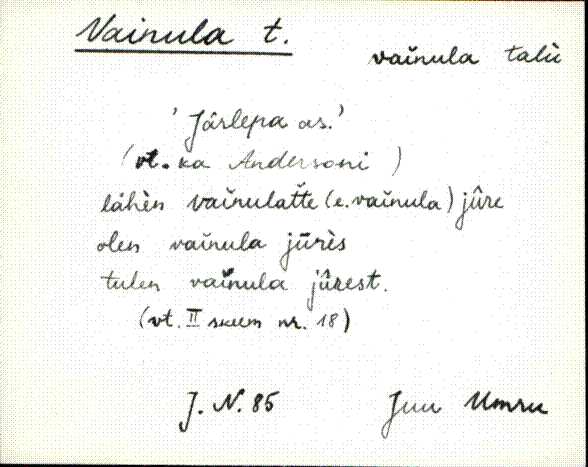 Vainula t.
vaĭnula talù
'Järlepa as.'
(vt. ka Andersoni)
lähèn vaĭnulatte (e. vaĭnula) jûre
olen vaĭnula jūrès
tulen vaĭnula jûrest.
(vt. II skeem nr. 18)
J. N. 85 Juu Umru